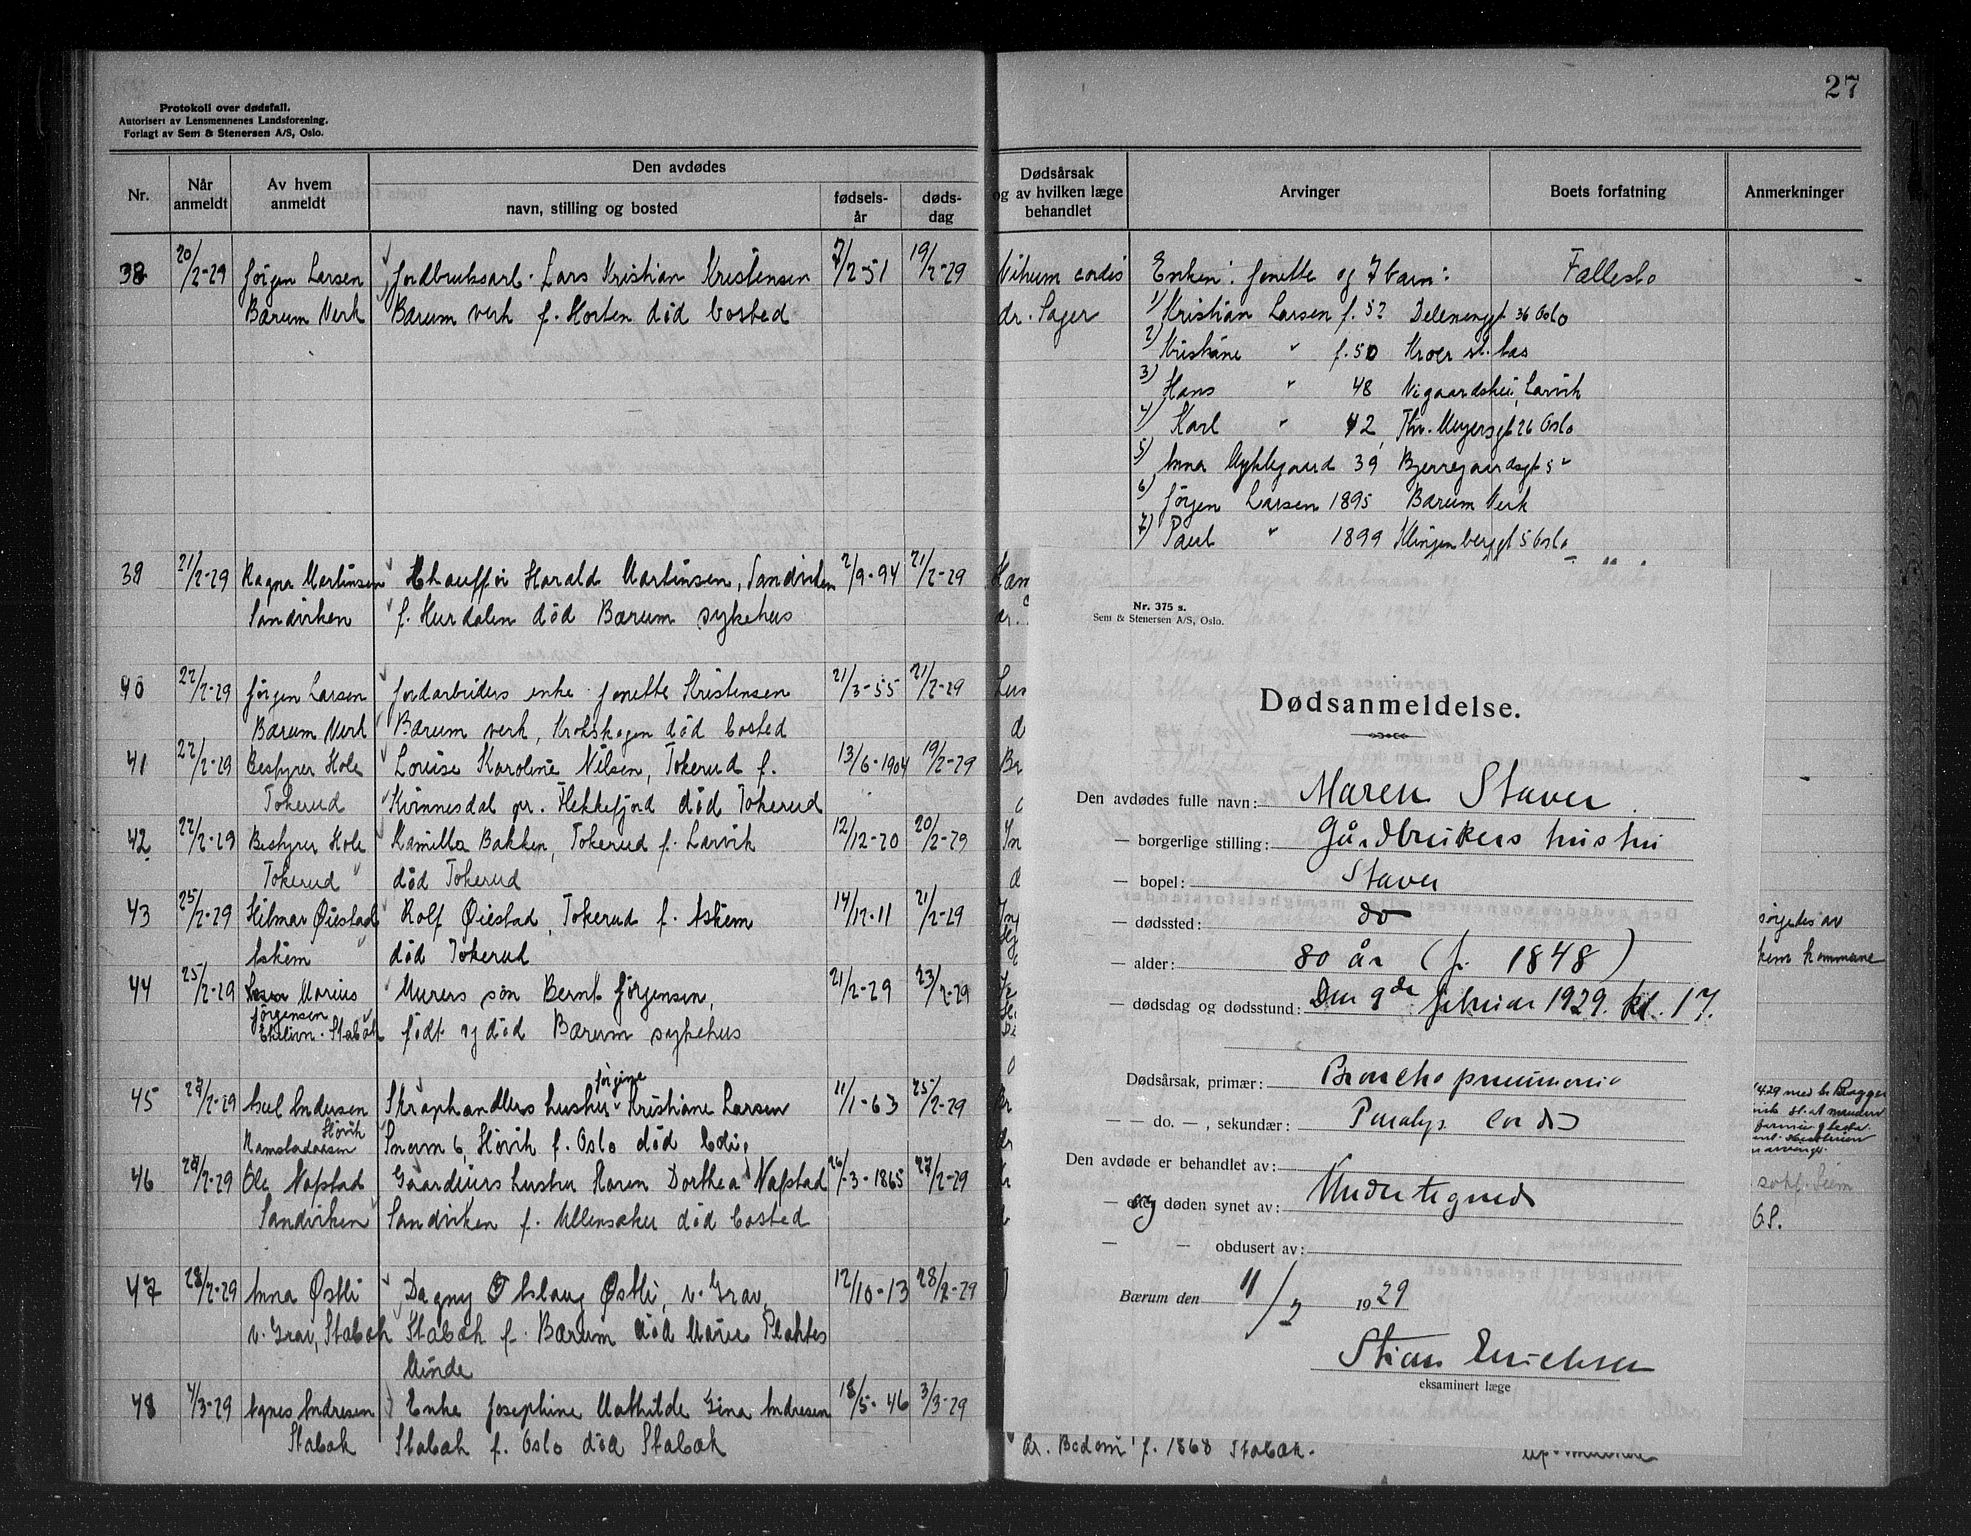 Protokoll over dødsfall.
Autorisert av Lensmennenes Landsforening.
Forlagt av Sem & Stenersen A/S, Oslo.
Nr.
Når anmeldt
Av hvem anmeldt
Den avdødes
navn, stilling og bosted
fødsels-år
døds-dag
38 20/2-29 Jörgen Larsen Jordbruksarb. Lars Kristian Kristensen 7/2-51 19/2-29
Bærum Verk Bærum verk f. Horten död bosted
39 21/2-29 Ragna Martinsen Chauffør Harald Martinsen, Sandviken 2/9-94 21/2-29
Sandviken f. Hurdalen död Bærum sykehus
40 22/2-29 Jörgen Larsen Jordarbeiders enke Jonette Kristensen 21/3-55 21/2-29
Bærum Verk Bærum verk, Krokskogen död bosted
41 22/2-29 Bestyrer Hole Lovise Karoline Nilsen, Tokerud f. 13/6-1904 19/2-29
Tokerud Kvinnesdal pr. Flekkefjord död Tokerud
42 22/2-29 Bestyrer Hole Kamilla Bakken, Tokerud f. Larvik 12/12-20 20/2-29
Tokerud " död Tokerud
43 25/2-29 Hilmar Øiestad Rolf Øiestad, Tokerud f. Askim 14/12-11 21/2-29
Askim död Tokerud
44 25/2-29 Marius Murers sön Bernt Jörgensen, 21/2-29 23/2-29
Jörgensen
Ekelivn. Stabæk födt og död Bærum sykehus
45 27/2-29 Axel Andersen Skraphandlers hustru Jörgine Kristiane Larsen 11/1-63 25/2-29
Hövik
Ramstadaasen Snevn 6, Hövik f. Oslo död
46 28/2-29 Ole Nafstad Gaardeiers hustru Karen Dorthea Nafstad 26/3-1865 27/2-29
Sandviken Sandviken f. Ullensaker död bosted
47 28/2-29 Anna Østli Dagny Aslaug Østli, v. Grav, 12/10-13 28/2-29
v. Grav, Stabæk Stabæk f. Bærum död Marie Plahtes
Minde
48 4/3-29 Agnes Andresen Enke Josephine Mathilde Gina Andresen 18/5-46 3/3-29
Stabæk Stabæk f. Oslo död Stabæk
27
Dødsårsak og av hvilken læge behandlet
Arvinger
Boets forfatning
Anmerkninger
Vitium cordis Enken: Jonette og 7 barn: Fællesbo
dr. Sager 1) Kristian Larsen f. 52 Delenenggt 36 Oslo
2) Kristiane " f. 50 Kroer st. Aas
3) Hans " 48 Larvik
4) Karl " 42 Thv. Meyersgt 26 Oslo
5) Anna Myklegaard 39 Bjerregaardsgt 5 "
6) Jörgen Larsen 1895 Bærum Verk
7) Paul " 1899 Klingenberggt 5 Oslo
Nr. 375 s.
Sem & Stenersen A/S, Oslo.
Dødsanmeldelse.
Den avdødes fulle navn: Maren Staver
— borgerlige stilling: Gårdbrukers hustru
— bopel: Staver
— dødssted: do
— alder: 80 år (f. 1848)
— dødsdag og dødsstund: Den 9de februar 1929. kl. 17.
Dødsårsak, primær: Bronchopneumonie
— do. —, sekundær: Paralys. cordis
Den avdøde er behandlet av:
— og døden synet av: Undertegnede
— — obdusert av:
Bærum den 11/2 1929
Stian Erichsen
eksaminert læge
sörgedes av
kommune
dr. Bodom f. 1868 Stabæk.